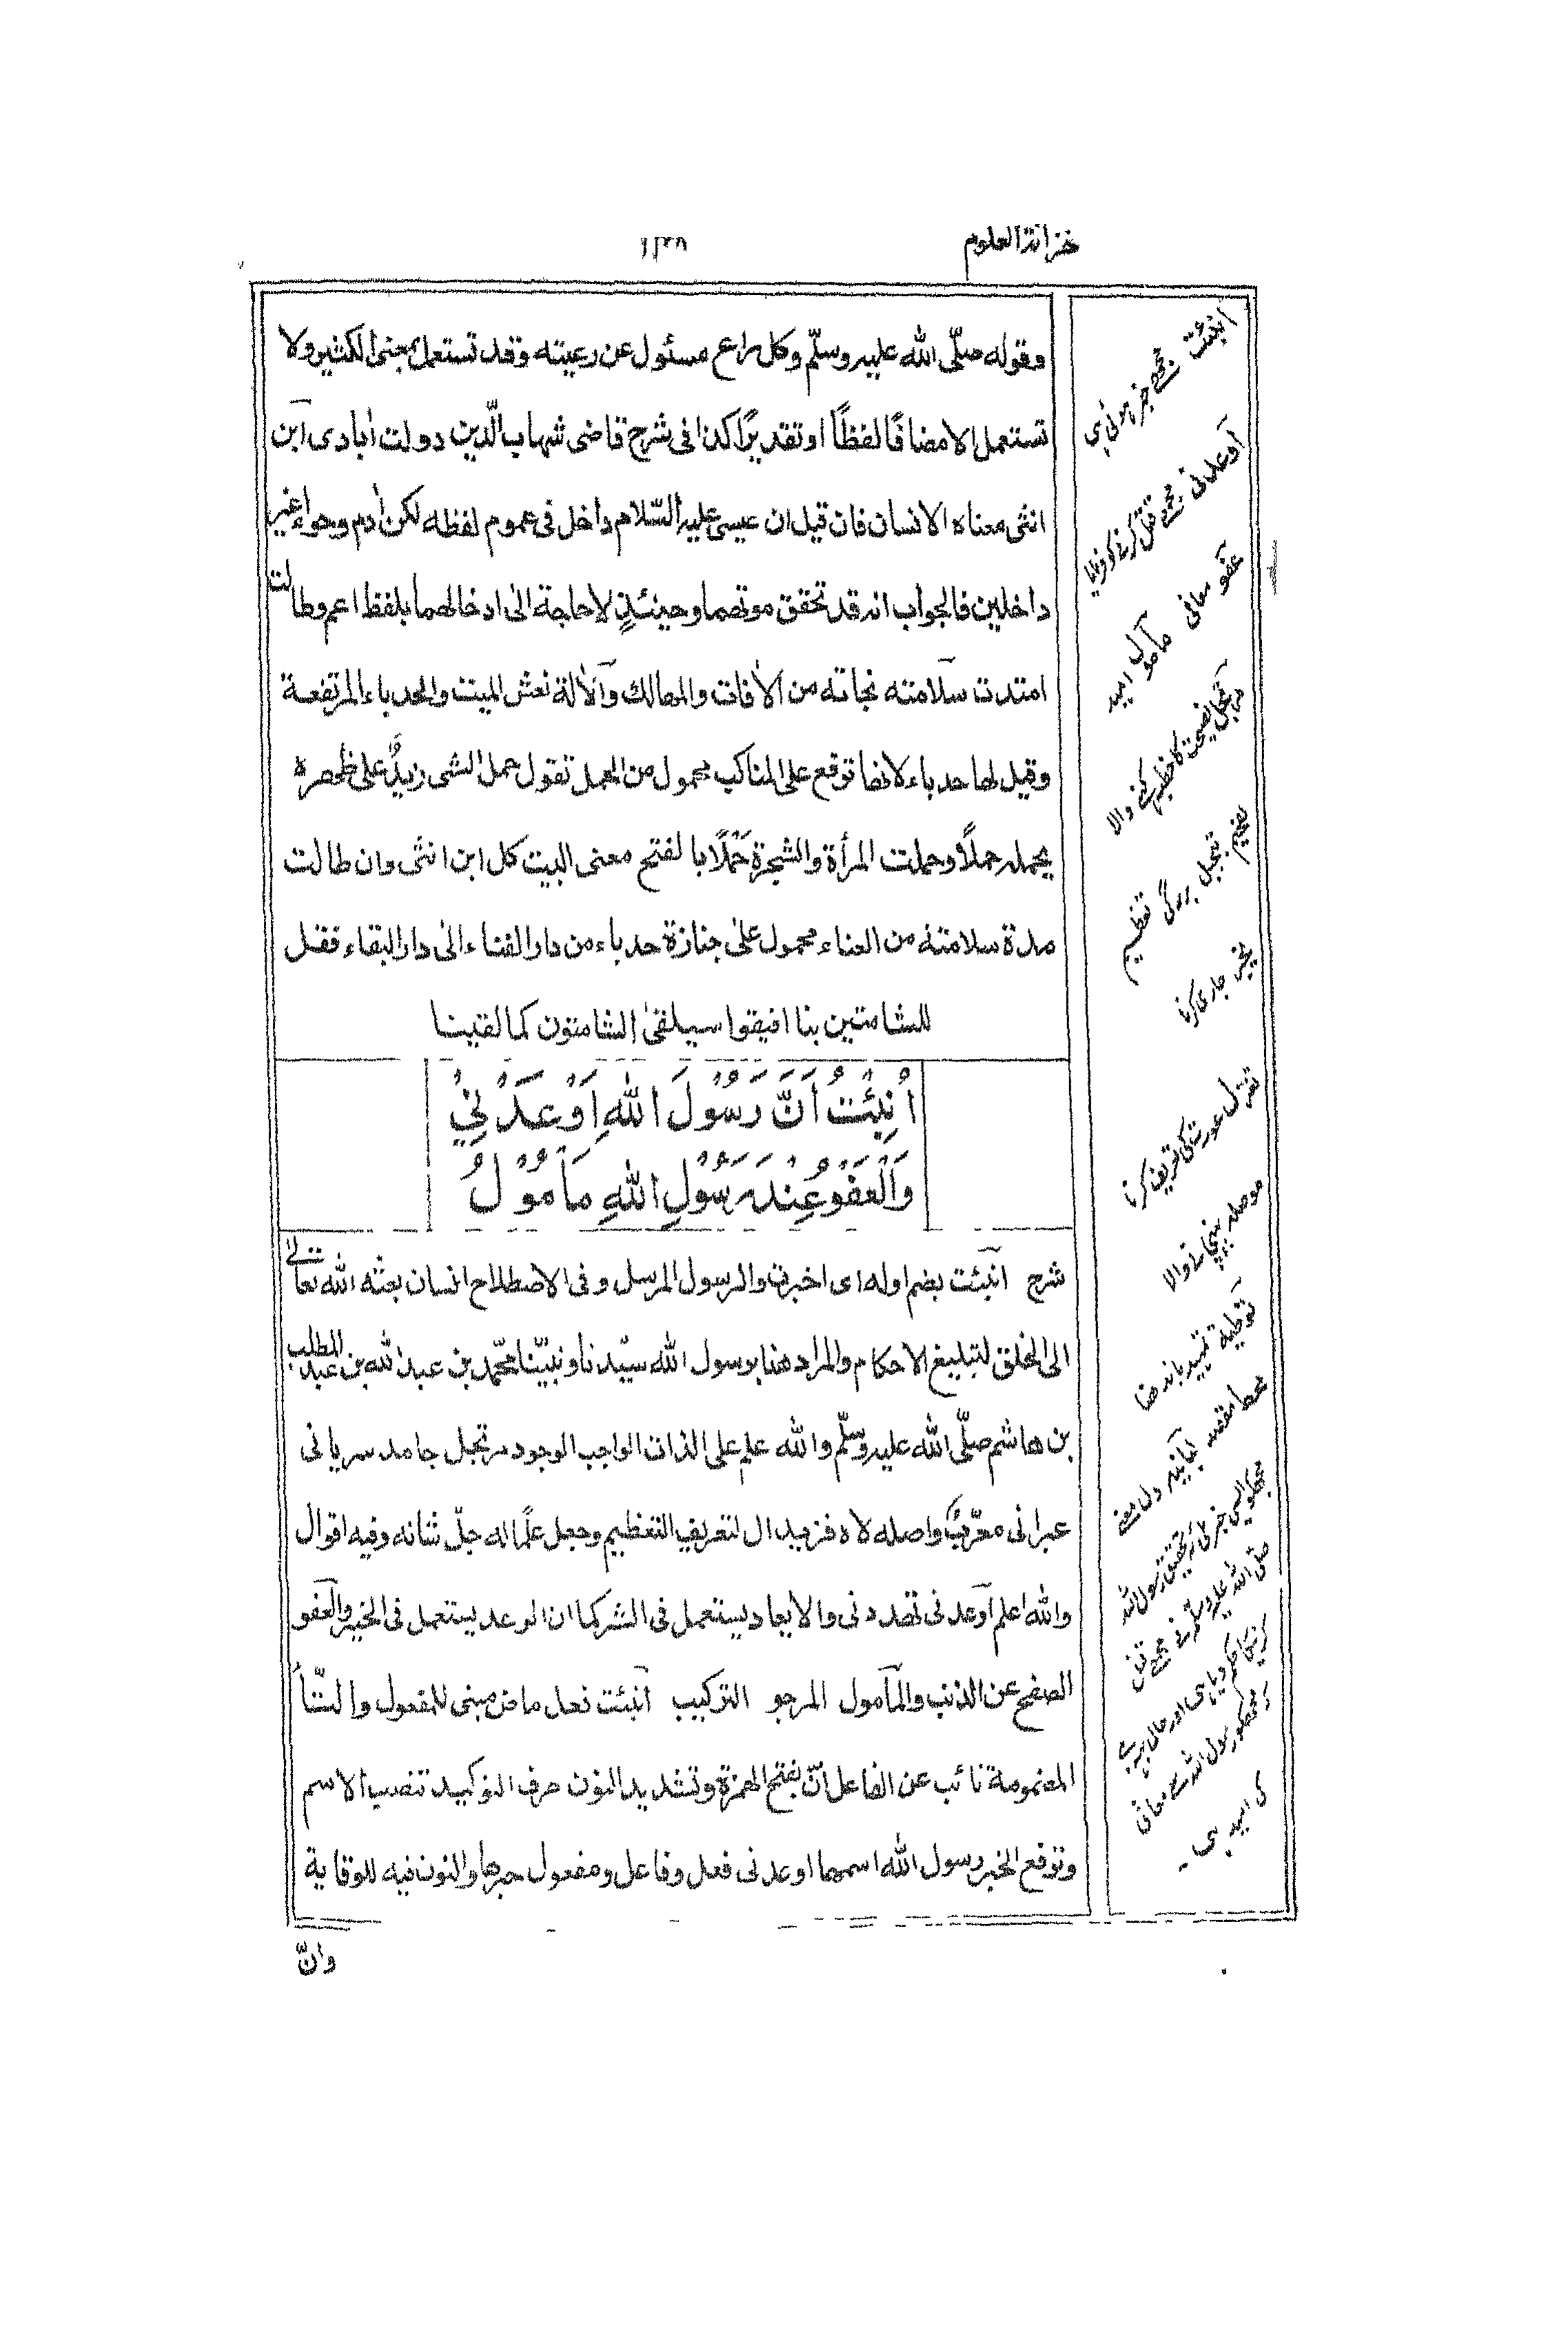 خزانة العلوم
وقوله صلّى الله عليه وسلّم وكل راع مسئول عن رعيته وقد تستعمل بمعنى الكثير ولا
تستعمل الامضافًا لفظًا اوتقديرًا كذا فى شرح قاضى شهاب الدّين دولت اٰبادى ابن
انثى معناه الانسان فان قيل ان عيسى عليه السّلام داخل فى عموم لفظه لكن اٰدم وحواء غير
داخلين فالجواب انه قد تحقق موتهما وحينئذٍ لاحاجة الى ادخالهما بلفظ اعم وطالت
امتدت سلامته نجاته من الاٰفات والمهالك والاٰلة نعش الميت والحدباء المرتفعة
وقيل لها حدباء لانها توقع على المناكب محمول من الحمل تقول حمل الشى زيدٌ على ظهره
يحمله حملاً وحملت المرأة والشجرة حَمْلًا بالفتح معنى البيت كل ابن انثى وان طالت
مدة سلامته من العناء محمول علىٰ جنازة حدباء من دار الفناء الىٰ دار البقاء فقل
للشامتين بنا افيقوا سيلقىٰ الشامتون كما لقينا
اُنْبِئْتُ اَنَّ رَسُوْلَ اللهِ اَوْعَدَنِيْ
وَالْعَفْوُ عِنْدَ رَسُوْلِ اللهِ مَأْمُوْلُ
شرح انبئت بضم اوله اى اخبرت والرسول المرسل وفى الاصطلاح انسان بعثه الله تعالىٰ
الى الخلق لتبليغ الاحكام والمراد هنا برسول الله سيّدنا ونبيّنا محمّد بن عبد الله بن عبد المطلب
بن هاشم صلّى الله عليه وسلّم والله علم على الذات الواجب الوجود مرتجل جامد سريانى
عبرانى معرّب واصله لاه فزيد ال لتعريف التعظيم وجعل علمًا له جلّ شانه وفيه اقوال
والله اعلم اوعدنى تهددنى والايعاد يستعمل فى الشر كما ان الوعد يستعمل فى الخير والعفو
الصفح عن الذنب والمأمول المرجو التركيب انبئت فعل ماض مبنى للمفعول والتّاُ
المضمومة نائب عن الفاعل انّ بفتح الهمزة وتشديد النون حرف التوكيد تنصب الاسم
وترفع الخبر رسول الله اسمها اوعدنى فعل وفاعل ومفعول خبرها والنون فيه للوقاية
وانّ
انبئت مجھے خبر ہوئی ہی
اوعدنى مجھے قتل کرنے کو فرمایا
عفو معافى مامول اميد
تبجيل بزرگی تعظیم
جاری کرنا
تغزل عورت کی تعریف کرنا
موصلہ پہنچانے والا
توطیہ تمہید باندھنا
صلى الله عليه وسلم نے مجھے قتل
کی امید ہی ۔